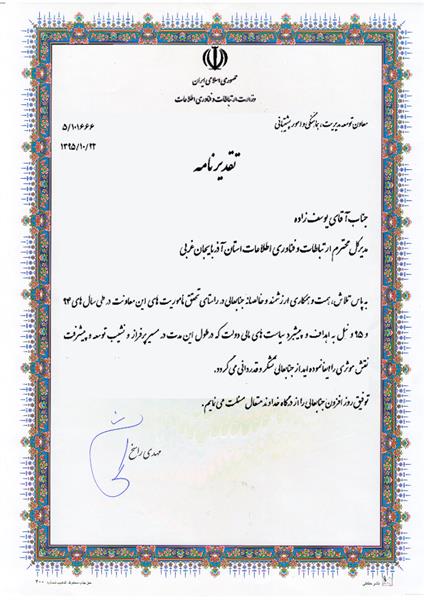 جمهوری اسلامی ایران
وزارت ارتباطات و فناوری اطلاعات
معاون توسعه مدیریت، هماهنگی و امور پشتیبانی
۵/۱۰۱۶۶۶
۱۳۹۵/۱۰/۲۲
تقدیرنامه
جناب آقای یوسف زاده
مدیرکل محترم ارتباطات و فناوری اطلاعات استان آذربایجان غربی
به پاس تلاش، همت و همکاری ارزشمند و خالصانه جنابعالی در راستای تحقق ماموریت های این معاونت در طی سال های ۹۴
و ۹۵ و نیل به اهداف و پیشبرد سیاست های مالی دولت که در طول این مدت در مسیر پر فراز و نشیب توسعه و پیشرفت
نقش موثری را ایفا نموده اید از جنابعالی تشکر و قدردانی می گردد.
توفیق روز افزون جنابعالی را از درگاه خداوند متعال مسئلت می نمایم.
مهدی راسخ